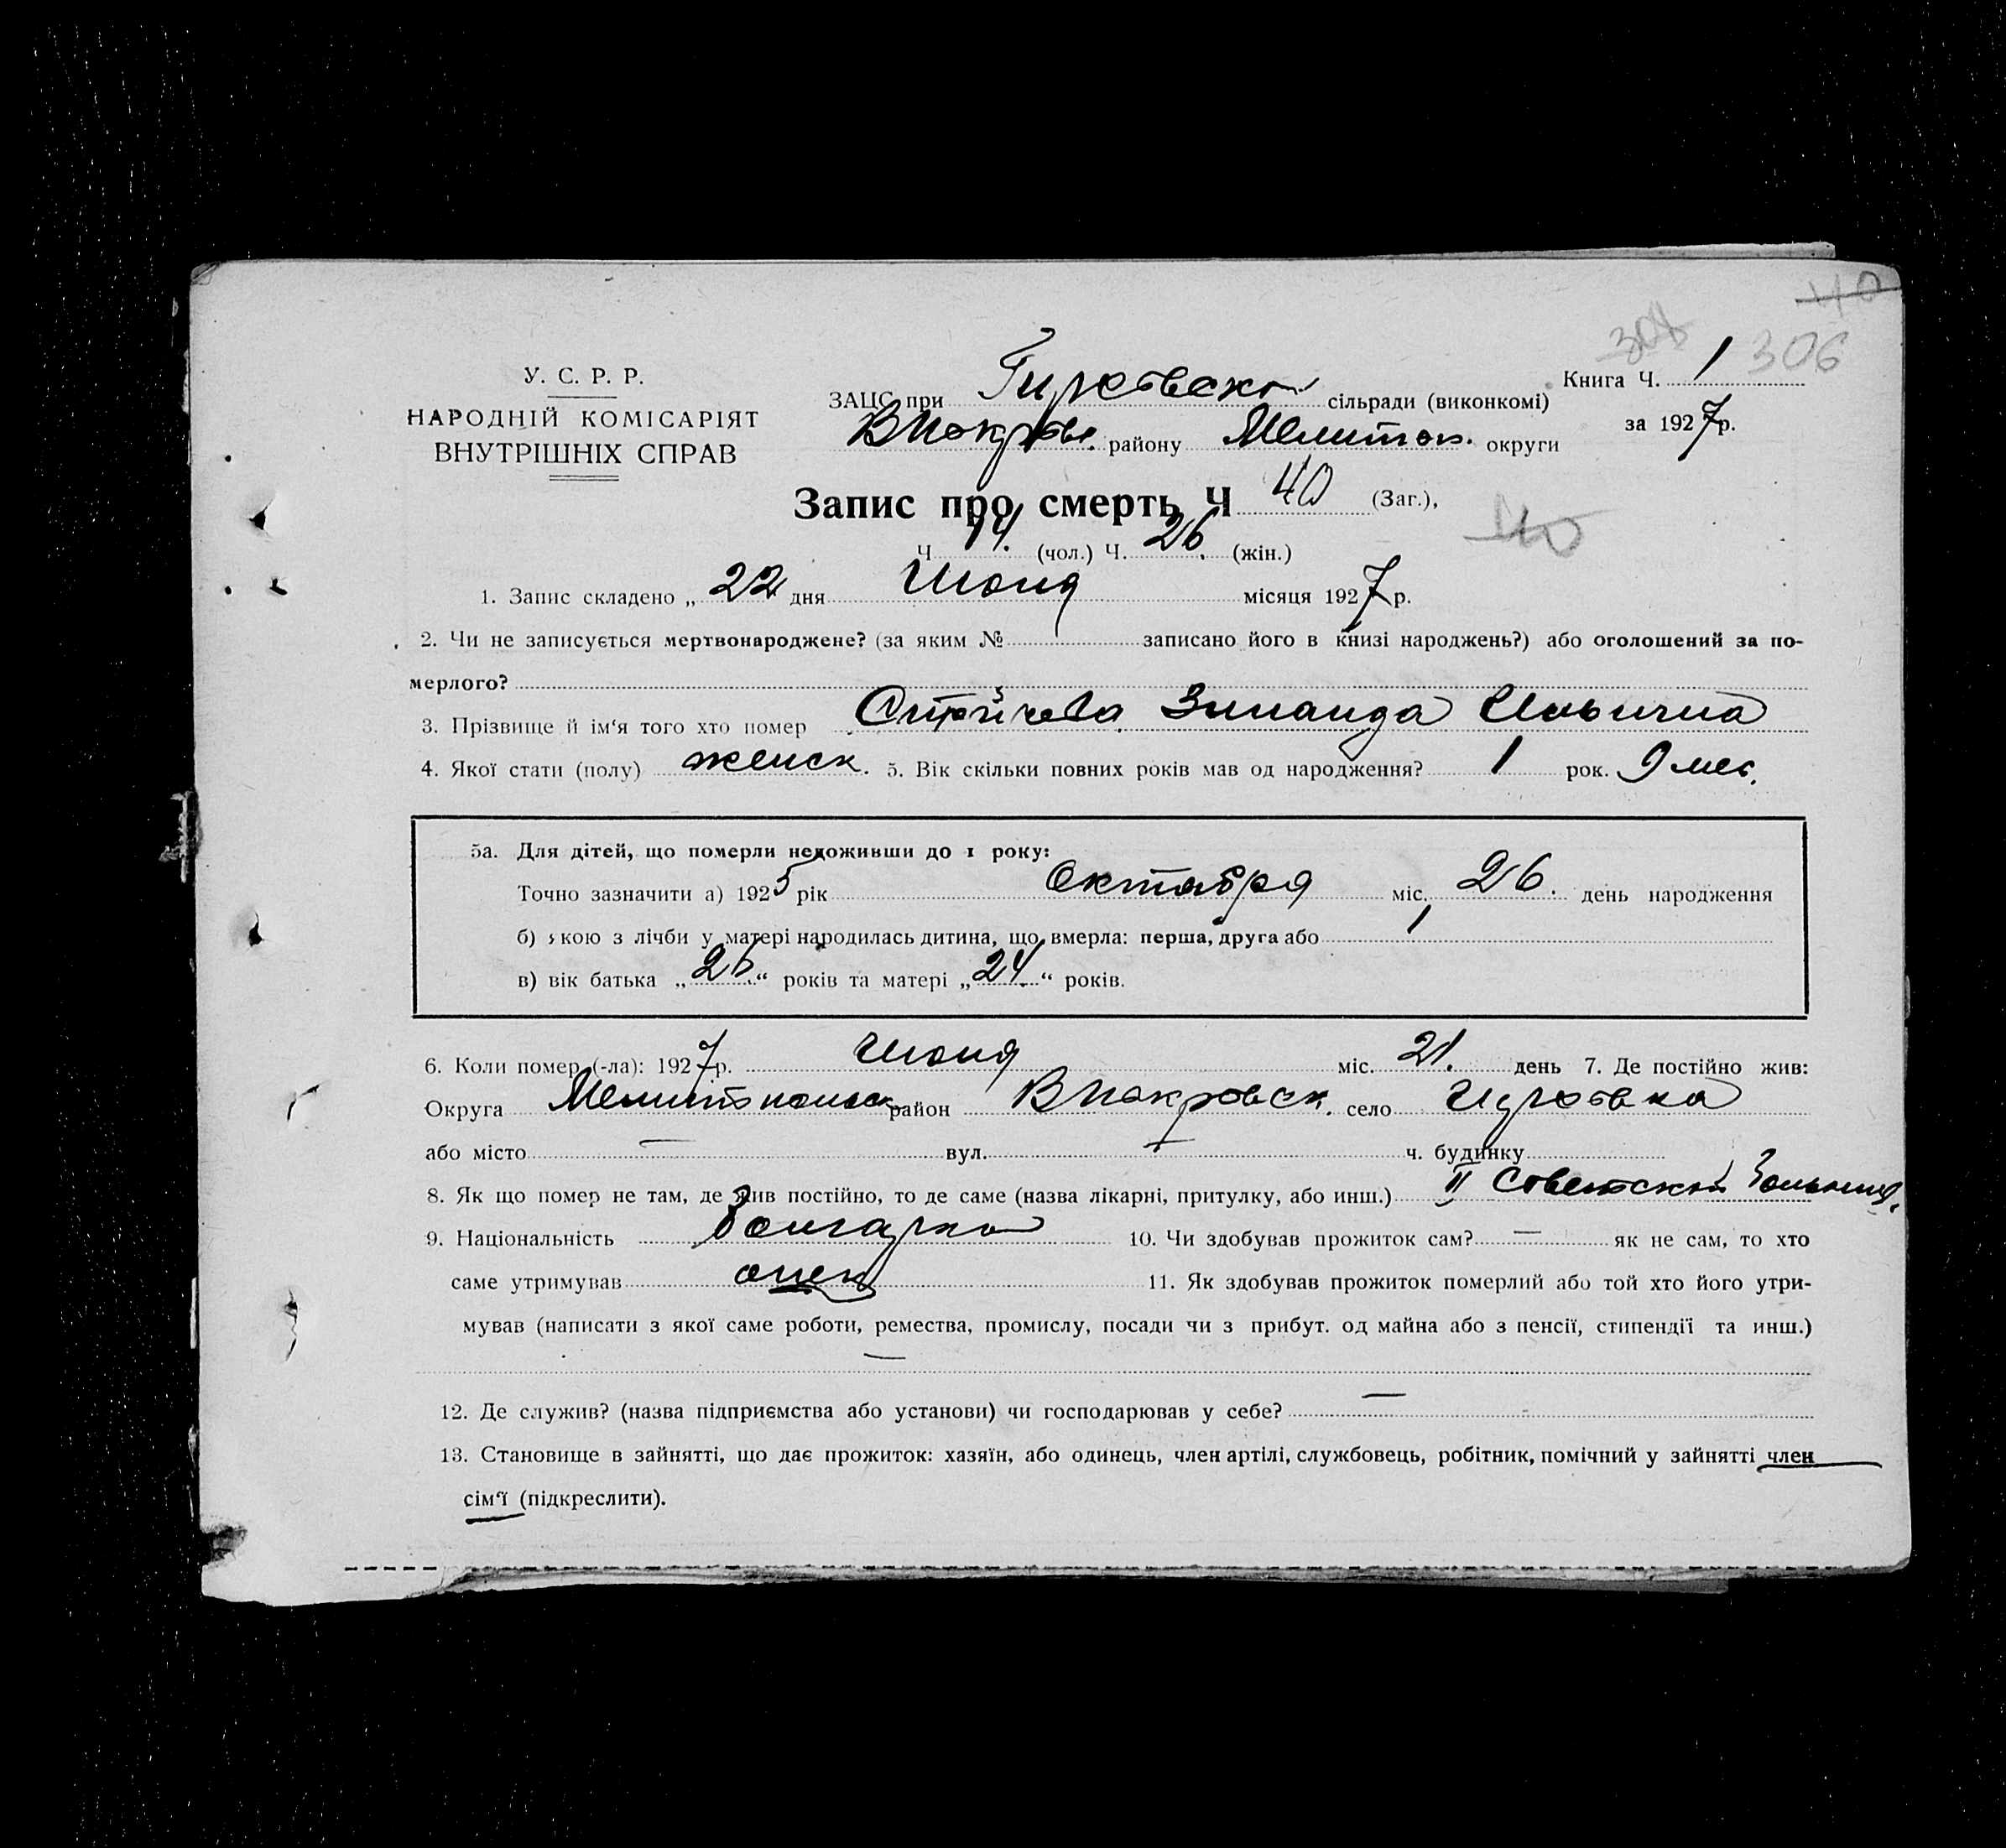 40
308 306
У. С. Р. Р.
НАРОДНІЙ КОМІСАРІЯТ
ВНУТРІШНІХ СПРАВ
ЗАЦС при Гирсовской сільради (виконкомі)
В Покров. району Мелитоп. округи
Книга Ч. 1
за 1927 р.
Запис про смерть Ч 40 (Заг.),
40
Ч 14. (чол.) Ч. 26. (жін.)
1. Запис складено „ 22 дня Июня місяця 1927 р.
2. Чи не записується мертвонароджене? (за яким № записано його в книзі народжень?) або оголошений за по-
мерлого?
3. Прізвище й ім'я того хто помер Стойчева Зинаида Ильична
4. Якої стати (полу) женск. 5. Вік скільки повних років мав од народження? 1 рок. 9 мес.
5а. Для дітей, що померли недоживши до 1 року:
Точно зазначити а) 1925 рік Октября міс. 26. день народження
б) якою з лічби у матері народилась дитина, що вмерла: перша, друга або 1
в) вік батька „ 26. “ років та матері „ 24. “ років.
6. Коли помер (-ла): 1927 р. Июня міс. 21. день 7. Де постійно жив:
Округа Мелитопольск район В Покровск. село Гирсовка
або місто — вул. — ч. будинку
8. Як що помер не там, де жив постійно, то де саме (назва лікарні, притулку, або инш.) II Советской больниц.
9. Національність болгарка 10. Чи здобував прожиток сам? — як не сам, то хто
саме утримував отец 11. Як здобував прожиток померлий або той хто його утри-
мував (написати з якої саме роботи, ремества, промислу, посади чи з прибут. од майна або з пенсії, стипендії та инш.)
—
12. Де служив? (назва підприємства або установи) чи господарював у себе? —
13. Становище в зайнятті, що дає прожиток: хазяїн, або одинець, член артілі, службовець, робітник, помічний у зайнятті член
сім'ї (підкреслити).